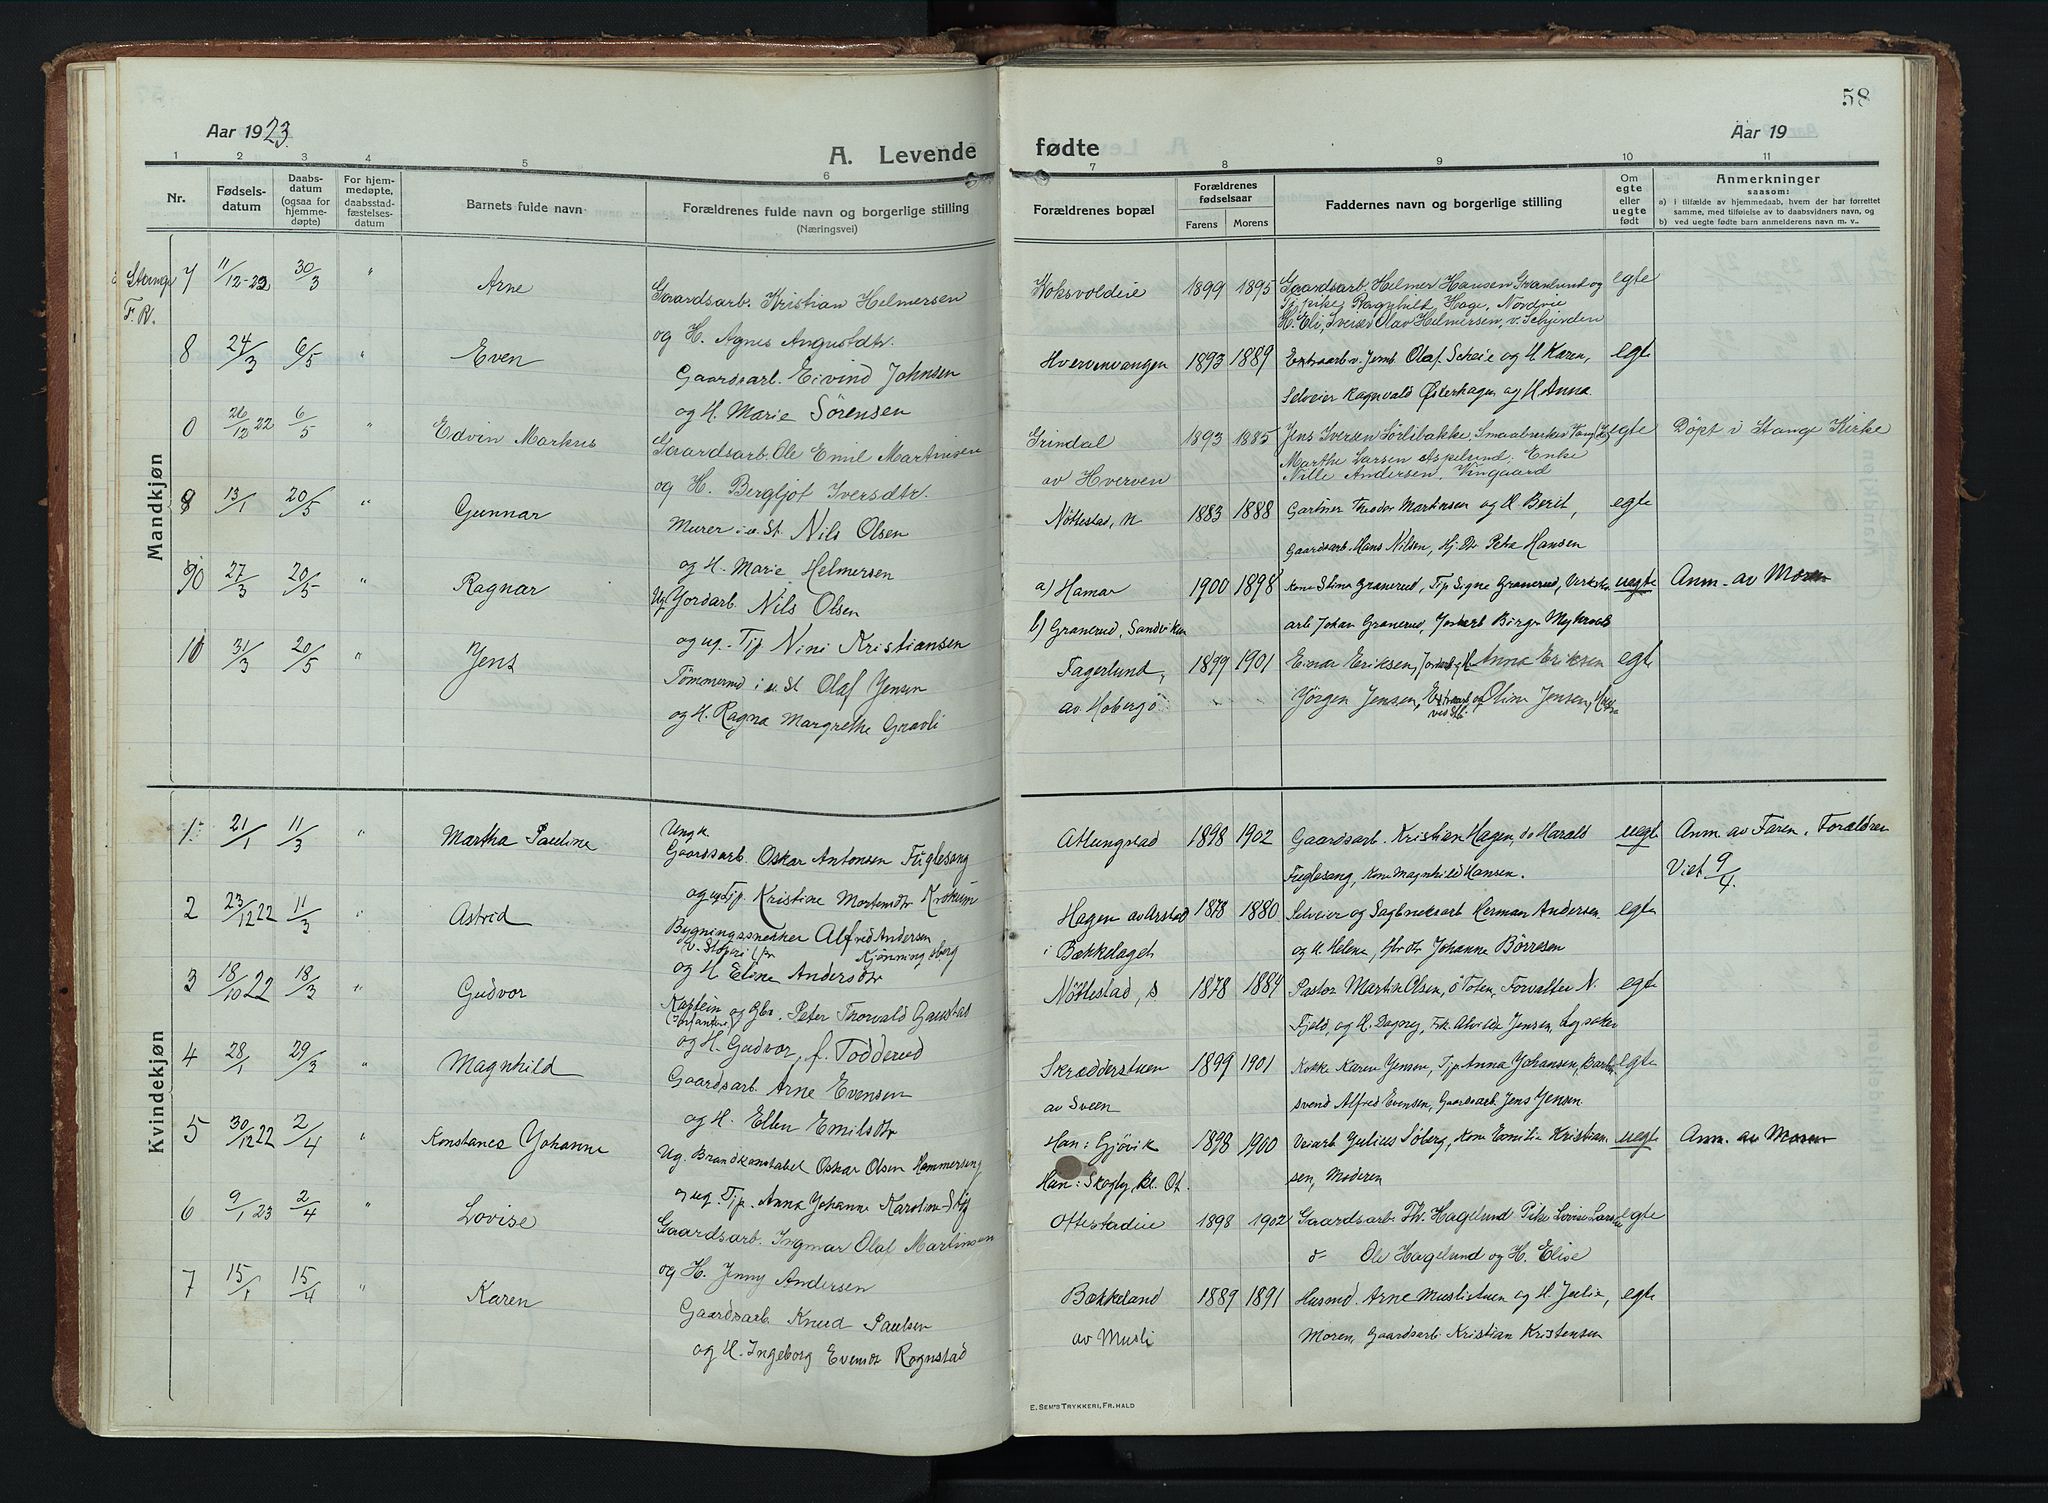 58
Aar 1923.
A. Levende
fødte
Aar 19
1 2 3 4 5 6 7 8 9 10 11
Nr.
Fødsels-
datum
Daabs-
datum
(ogsaa for
hjemme-
døpte)
For hjem-
medøpte,
daabsstad-
fæstelses-
datum
Barnets fulde navn
Forældrenes fulde navn og borgerlige stilling
(Næringsvei)
Forældrenes bopæl
Forældrenes
fødselsaar
Farens
Morens
Faddernes navn og borgerlige stilling
Om
egte
eller
uegte
født
Anmerkninger
saasom:
a) i tilfælde av hjemmedaab, hvem der har forrettet
samme, med tilføielse av to daabsvidners navn, og
b) ved uegte fødte barn anmelderens navn m. v..
Mandkjøn
Stange
F. R.
7 11/12-22 30/3 " Arne
Gaardsarb. Kristian Helmersen
og H. Agnes Augustdtr.
Voksvoldeie 1899 1895
Gaardsarb. Helmer Hansen Granlund og
Tj. pike Ragnhild Hage, Nordvie
H. Eli, Olav Helmersen, v. Schjerden
egte
8 24/3 6/5 " Even
Gaardsarb. Eivind Johnsen
og H. Marie Sörensen
Hvervenvangen 1893 1889
Extraarb. v. Jernb. Olaf Scheie og H. Karen,
Selveier Ragnvald Østerhagen og H. Anna
egte
0 26/12 22 6/5 " Edvin Markus
Gaardsarb. Ole Emil Martinsen
og H. Bergljot Iversdtr.
Grindal
av Hverven
1893 1885
Jens Iversen Sörlibakke, Smaabruker
Marthe Larsen Aspelund. Enke
Nille Andersen, Vingaard
egte
Døpt i Stange Kirke
9 13/1 20/5 " Gunnar
Murer i u. St. Nils Olsen
og H. Marie Helmersen
Nøttestad, n 1883 1888
Gartner Theodor Martinsen og H. Berit,
Gaardsarb. Hans Nilsen, Hj. Dtr. Petra Hansen
egte
10 27/3 20/5 " Ragnar
Ug. Jordarb. Nils Olsen
og ug. Tjp Nini Kristiansen
a) Hamar
b) Granerud, Sandviken
1900 1898
Kone Stina Granerud, Tjp Signe Granerud, Verksted
arb Johan Granerud, Jordarb Birger
uegte
Anm. av Moren
10 31/3 20/5 " Jens
Tömmermd i u. St Olaf Jensen
og H. Ragna Margrethe Gravli
Fagerlund,
av Hobergs
1899 1901
Einar Eriksen, Jordarb og H Anna Eriksen
Jörgen Jensen, Extraarb og Oline Jensen,
ved Stb.
egte
Kvindekjøn
1. 21/1 11/3 " Martha Pauline
Ungk.
Gaardsarb. Oskar Antonsen Fuglesang
og ug Tjp. Kristine Mortensdtr Krokum
Atlungstad 1898 1902
Gaardsarb. Kristian Hagen, do Harald
Fuglesang, Kone Magnhild Hansen.
uegte
Anm. av Faren. Forældren
Viet 9/4.
2 23/12 22 11/3 " Astrid
Bygningssnekker Alfred Andersen
Kjönningsberg
og H Eline Andersdtr
Hagen av Arstad
i Bækkelaget
1878 1880
Selveier og Sagbruksarb Herman Andersen
og H. Helene, Gbr dtr Johanne Börresen
egte
3 18/10 22 18/3 " Gudvor
Kaptein og Gbr. Peter Thorvald Gaustad
(Infanteri)
og H. Gudvor, f. Todderud
Nøttestad, s 1878 1884
Pastor Martin Olsen, Ö Toten, Forvalter N.
Fjeld, og H. Dagny, Frk. Alvilde Jensen, Lysaker
egte
4 28/1 29/3 " Magnhild
Gaardsarb. Arne Evensen
og H. Ellen Emilsdtr
Skrædderstuen
av Sveen
1899 1901
Kokke Karen Jensen, Tjp. Anna Johansen, Barber
svend Alfred Evensen, Gaardsarb. Jens Jensen
egte
5 30/12 22 2/4 " Konstance Johanne
Ug. Brandkonstabel Oskar Olsen Hammerseng
og ug. Tjp. Anna Johanne Karoline
Han: Gjøvik
Hun: Skogly, kl. Ot.
1898 1900
Veiarb Julius Söberg, Kone Emilie Kristian
sen, Moderen
uegte
Anm. av Moren
6 9/1 23 2/4 " Lovise
Gaardsarb. Ingmar Olaf Martinsen
og H. Jenny Andersen
Ottestadeie 1898 1902
Gaardsarb. Th. Hagelund Pike Lovise Larsen
Ole Hagelund og H. Elise
egte
7 15/1 15/4 " Karen
Gaardsarb. Knud Paulsen
og H. Ingeborg Evensdtr Rognstad
Bækkeland
av Musli
1889 1891
Husmd. Arne Muslistuen og H. Julie,
Moren, Gaardsarb. Kristian Kristensen
egte
E. SEM'S TRYKKERI, FR. HALD